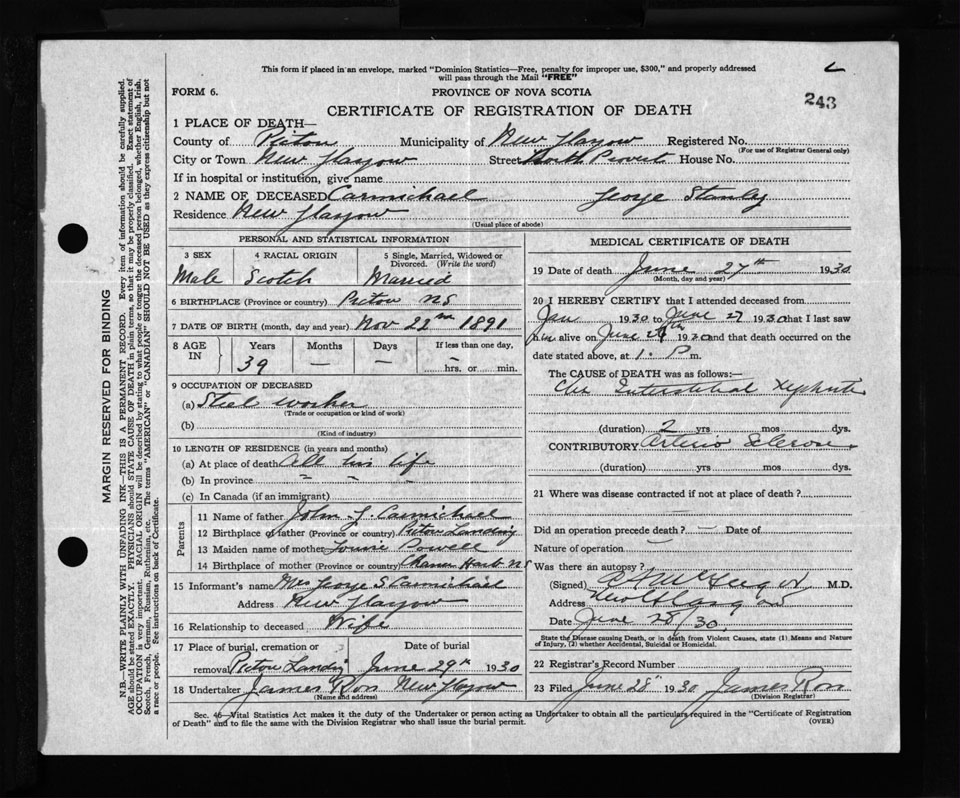 This form if placed in an envelope, marked "Dominion Statistics—Free, penalty for improper use, $300," and properly addressed
will pass through the Mail "FREE"
FORM 6. PROVINCE OF NOVA SCOTIA
243
CERTIFICATE OF REGISTRATION OF DEATH
1 PLACE OF DEATH—
County of Pictou Municipality of New Glasgow Registered No.
(For use of Registrar General only)
City or Town New Glasgow Street North Provost House No.
If in hospital or institution, give name
2 NAME OF DECEASED Carmichael George Stanley
Residence New Glasgow
(Usual place of abode)
PERSONAL AND STATISTICAL INFORMATION
3 SEX 4 RACIAL ORIGIN 5 Single, Married, Widowed or
Divorced. (Write the word)
Male Scotch Married
6 BIRTHPLACE (Province or country) Pictou NS
7 DATE OF BIRTH (month, day and year) Nov 22nd 1891
8 AGE IN Years Months Days If less than one day,
39 — — — hrs. or min.
9 OCCUPATION OF DECEASED
(a) Steel worker
(Trade or occupation or kind of work)
(b)
(Kind of industry)
10 LENGTH OF RESIDENCE (in years and months)
(a) At place of death All his life
(b) In province " " "
(c) In Canada (if an immigrant)
Parents
11 Name of father John S. Carmichael
12 Birthplace of father (Province or country) Pictou Landing
13 Maiden name of mother Powell
14 Birthplace of mother (Province or country) Harb NS
15 Informant's name Mrs George S Carmichael
Address New Glasgow
16 Relationship to deceased Wife
17 Place of burial, cremation or Date of burial
removal Pictou Landing June 29th 1930
18 Undertaker James Ross New Glasgow
(Name and address)
MEDICAL CERTIFICATE OF DEATH
19 Date of death June 27th 1930
(Month, day and year)
20 I HEREBY CERTIFY that I attended deceased from
Jan 1930 to June 27 1930 that I last saw
him alive on June 26th 1930 and that death occurred on the
date stated above, at 1. P m.
The CAUSE of DEATH was as follows:—
Chr Interstitial Nephritis
(duration) 2 yrs mos dys.
CONTRIBUTORY Arterio Sclerosis
(duration) yrs mos dys.
21 Where was disease contracted if not at place of death?
Did an operation precede death? — Date of
Nature of operation —
Was there an autopsy?
(Signed) M.D.
Address New Glasgow
Date June 28/30
State the Disease causing Death, or in death from Violent Causes, state (1) Means and Nature
of Injury, (2) whether Accidental, Suicidal or Homicidal.
22 Registrar's Record Number
23 Filed June 28th 1930 James Ross
(Division Registrar)
Sec. 46—Vital Statistics Act makes it the duty of the Undertaker or person acting as Undertaker to obtain all the particulars required in the "Certificate of Registration
of Death" and to file the same with the Division Registrar who shall issue the burial permit. (OVER)
MARGIN RESERVED FOR BINDING
N.B.—WRITE PLAINLY WITH UNFADING INK—THIS IS A PERMANENT RECORD. Every item of information should be carefully supplied.
AGE should be stated EXACTLY. PHYSICIANS should STATE CAUSE OF DEATH in plain terms, so that it may be properly classified. Exact statement of
OCCUPATION is very important. RACIAL ORIGIN will be described by stating to what people or tongue the deceased person belonged, whether English, Irish,
Scotch, French, German, Russian, Ruthenian, etc. The terms "AMERICAN" or "CANADIAN" SHOULD NOT BE USED as they express citizenship but not
a race or people. See instructions on back of Certificate.